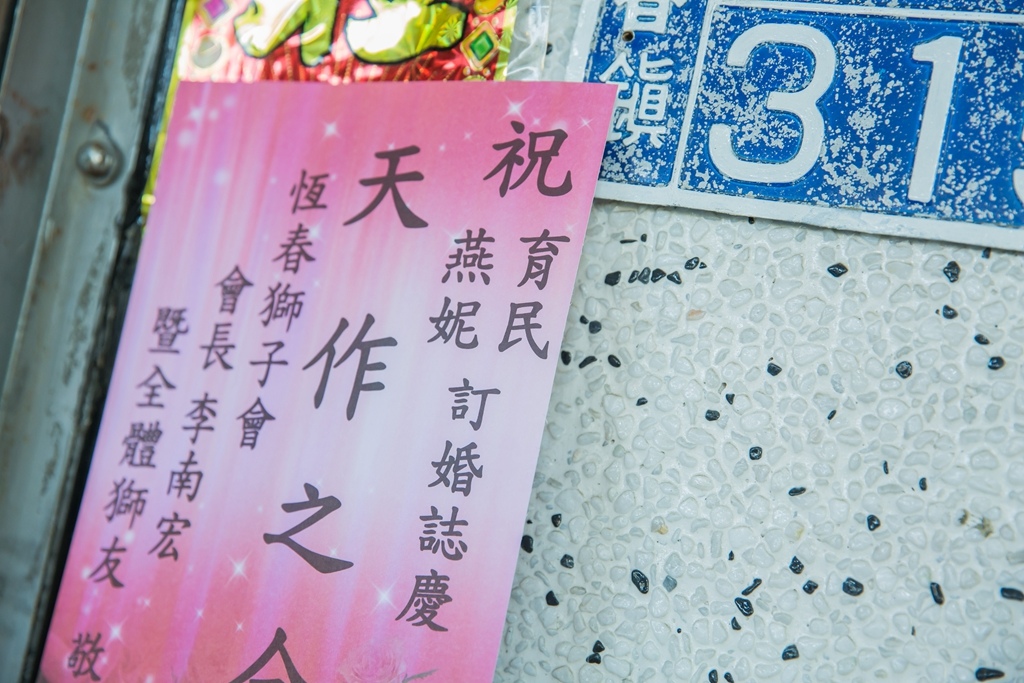 鎮
31
祝
育民
燕妮
訂婚誌慶
天作之
恆春獅子會
會長 李南宏
暨全體獅友 敬